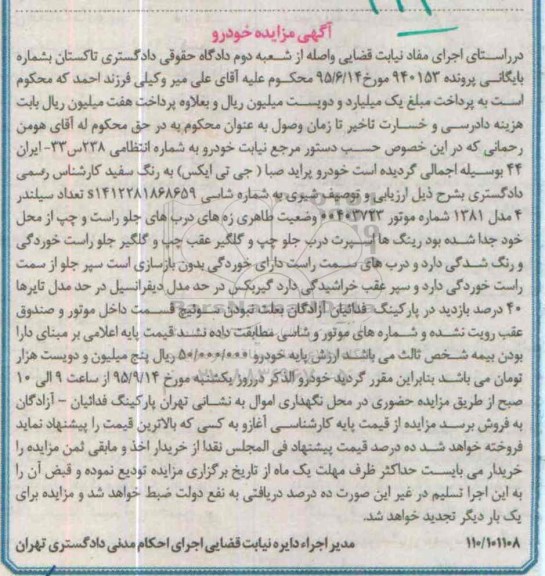 آگهی مزایده خودرو
درراستای اجرای مفاد نیابت قضایی واصله از شعبه دوم دادگاه حقوقی دادگستری تاکستان بشماره
بایگانی پرونده ۹۴۰۱۵۳ مورخ ۹۵/۶/۱۴ محکوم علیه آقای علی میر وکیلی فرزند احمد که محکوم
است به پرداخت مبلغ یک میلیارد و دویست میلیون ریال و بعلاوه پرداخت هفت میلیون ریال بابت
هزینه دادرسی و خسارت تاخیر تا زمان وصول به عنوان محکوم به در حق محکوم له آقای هومن
رحمانی که در این خصوص حسب دستور مرجع نیابت خودرو به شماره انتظامی ۲۳۸س۳۳- ایران
۴۴ بوسیله اجمالی گردیده است خودرو پراید صبا ( جی تی ایکس) به رنگ سفید کارشناس رسمی
دادگستری بشرح ذیل ارزیابی و توصیف شیوی به شماره شاسی s۱۴۱۲۲۸۱۸۶۸۶۵۹ تعداد سیلندر
۴ مدل ۱۳۸۱ شماره موتور ۰۰۴۰۳۷۲۳ وضعیت ظاهری زه های درب های جلو راست و چپ از محل
خود جدا شده بود رینگ ها اسپرت درب جلو چپ و گلگیر عقب چپ و گلگیر جلو راست خوردگی
و رنگ شدگی دارد و درب های سمت راست دارای خوردگی بدون بازسازی است سپر جلو از سمت
راست خوردگی دارد و سپر عقب خراشیدگی دارد گیربکس در حد مدل دیفرانسیل در حد مدل تایرها
۴۰ درصد بازدید در پارکینگ فدائیان آزادگان بعلت نبودن سوئیچ قسمت داخل موتور و صندوق
عقب رویت نشده و شماره های موتور و شاسی مطابقت داده نشد قیمت پایه اعلامی بر مبنای دارا
بودن بیمه شخص ثالث می باشد ارزش پایه خودرو ۵۰/۰۰۰/۰۰۰ ریال پنج میلیون و دویست هزار
تومان می باشد بنابراین مقرر گردید خودرو الذکر درروز یکشنبه مورخ ۹۵/۹/۱۴ از ساعت ۹ الی ۱۰
صبح از طریق مزایده حضوری در محل نگهداری اموال به نشانی تهران پارکینگ فدائیان - آزادگان
به فروش برسد مزایده از قیمت پایه کارشناسی آغازو به کسی که بالاترین قیمت را پیشنهاد نماید
فروخته خواهد شد ده درصد قیمت پیشنهاد فی المجلس نقدا از خریدار اخذ و مابقی ثمن مزایده را
خریدار می بایست حداکثر ظرف مهلت یک ماه از تاریخ برگزاری مزایده تودیع نموده و قبض آن را
به این اجرا تسلیم در غیر این صورت ده درصد دریافتی به نفع دولت ضبط خواهد شد و مزایده برای
یک بار دیگر تجدید خواهد شد.
۱۱۰/۱۰۱۱۰۸ مدیر اجراء دایره نیابت قضایی اجرای احکام مدنی دادگستری تهران